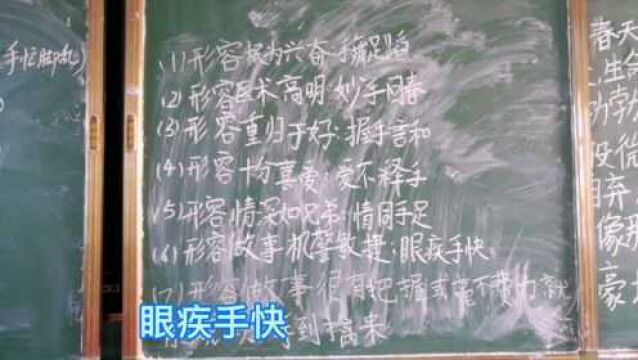 手忙脚乱)
(1)形容极为兴奋:手舞足蹈
(2)形容医术高明:妙手回春
(3)形容重归于好:握手言和
(4)形容十分喜爱:爱不释手
(5)形容情深如兄弟:情同手足
(6)形容做事机警敏捷:眼疾手快
(7)形容做事很有把握或毫不费力就
到擒来
眼疾手快
春天
生命
勃
没
弃
像
豪